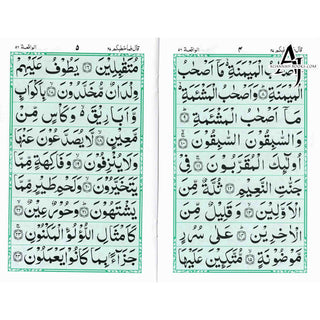 الواقعة ٥٦
٤
اَصْحٰبُ الْمَيْمَنَةِ مَآ اَصْحٰبُ
الْمَيْمَنَةِ ۝ وَاَصْحٰبُ الْمَشْئَمَةِ
مَآ اَصْحٰبُ الْمَشْئَمَةِ ۝
وَالسّٰبِقُوْنَ السّٰبِقُوْنَ ۝
اُولٰٓئِكَ الْمُقَرَّبُوْنَ ۝ فِيْ
جَنّٰتِ النَّعِيْمِ ۝ ثُلَّةٌ مِّنَ
الْاَوَّلِيْنَ ۝ وَقَلِيْلٌ مِّنَ
الْاٰخِرِيْنَ ۝ عَلٰى سُرُرٍ
مَّوْضُوْنَةٍ ۝ مُّتَّكِئِيْنَ عَلَيْهَا
قال فما خطبكم ٢٧
٥
الواقعة ٥٦
مُتَقٰبِلِيْنَ ۝ يَطُوْفُ عَلَيْهِمْ
وِلْدَانٌ مُّخَلَّدُوْنَ ۝ بِاَكْوَابٍ
وَّاَبَارِيْقَ ۙ وَكَاْسٍ مِّنْ
مَّعِيْنٍ ۝ لَّا يُصَدَّعُوْنَ عَنْهَا
وَلَا يُنْزِفُوْنَ ۝ وَفَاكِهَةٍ مِّمَّا
يَتَخَيَّرُوْنَ ۝ وَلَحْمِ طَيْرٍ مِّمَّا
يَشْتَهُوْنَ ۝ وَحُوْرٌ عِيْنٌ ۝
كَاَمْثَالِ اللُّؤْلُؤِ الْمَكْنُوْنِ ۝
جَزَآءًۢ بِمَا كَانُوْا يَعْمَلُوْنَ ۝